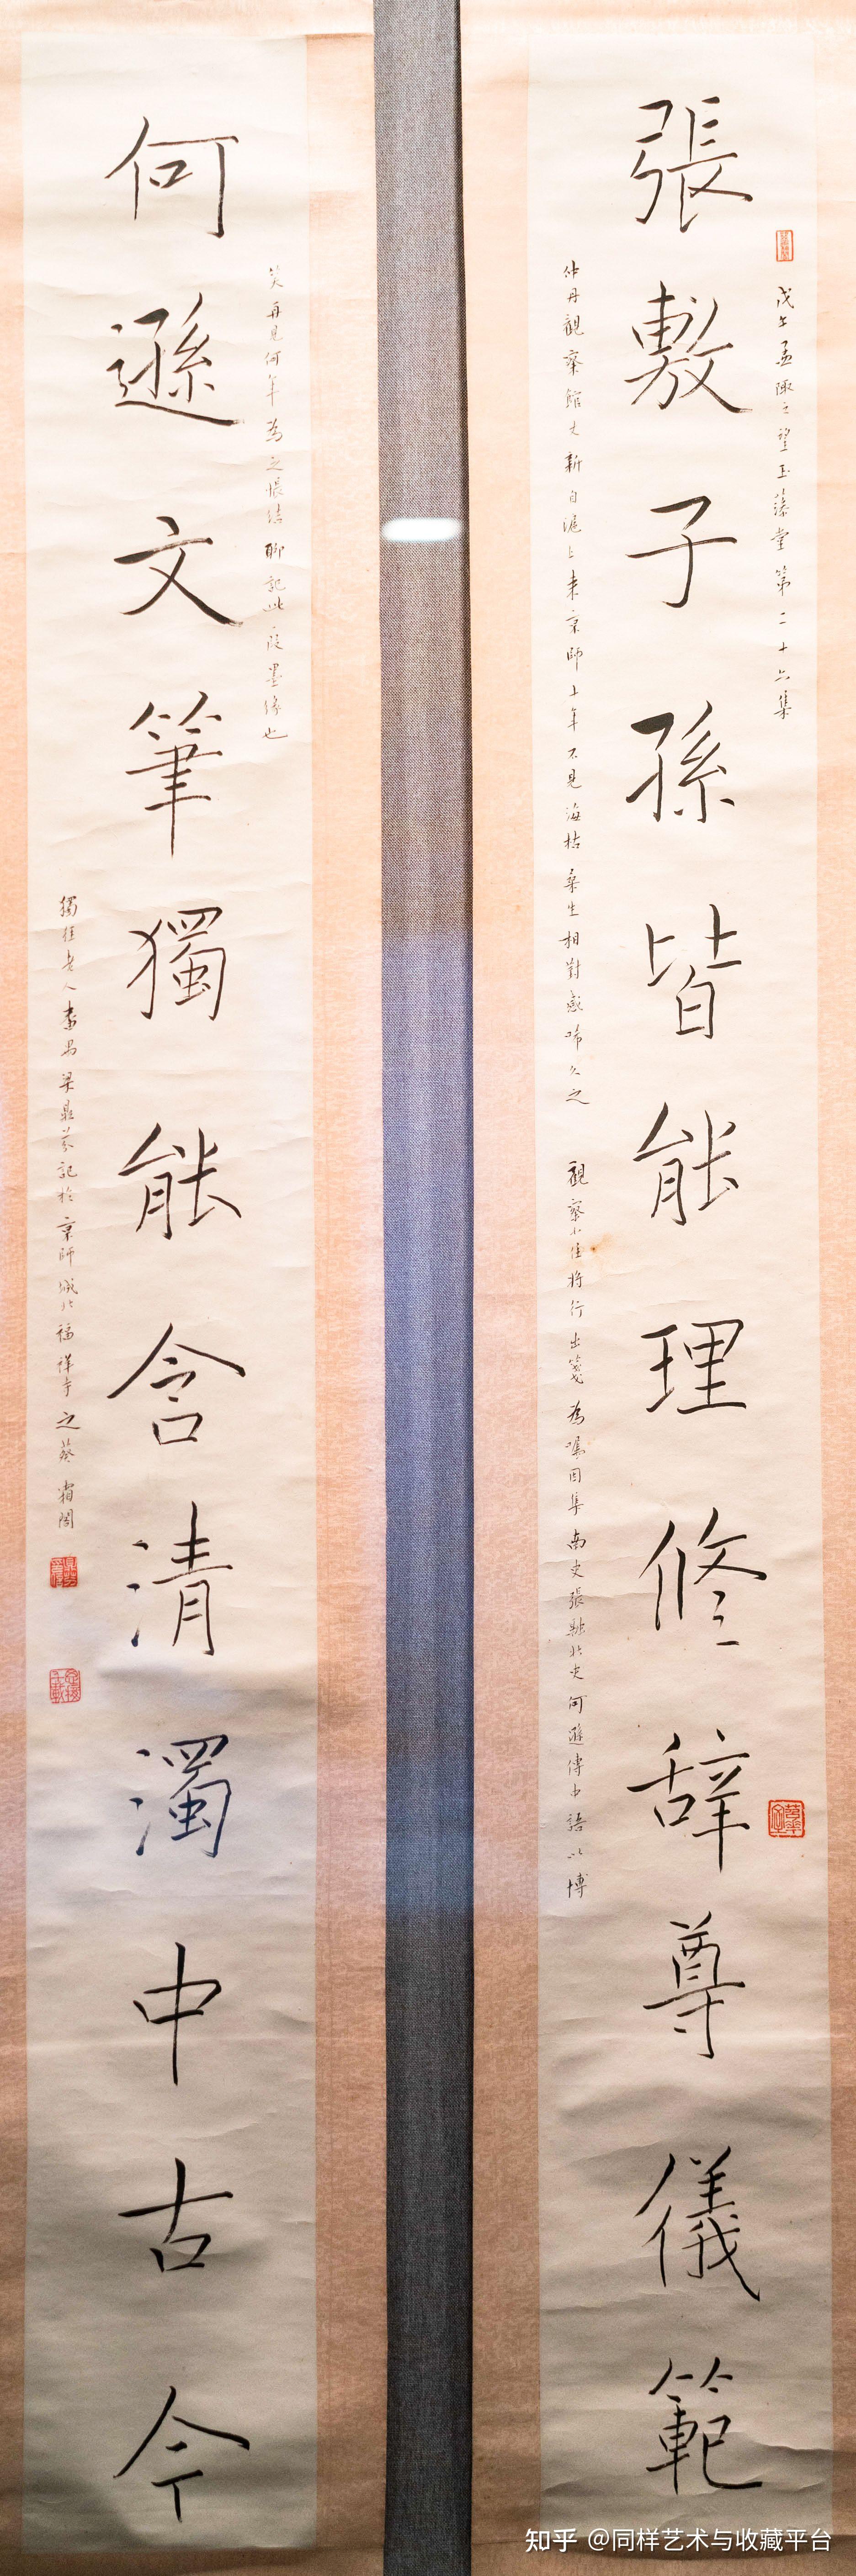 張敷子孫皆能理修辞尊儀範
戊午孟陬之望玉藻堂第二十六集
仲丹觀察館丈新自滬上來京師十年不見海枯桑生相對感唏久之
觀察小住将行出箋為嘱因集南史張融北史何遜傳中語以博
何遜文筆獨能含清濁中古今
笑再見何年為之悵结聊記此段墨緣也
獨往老人番禺梁鼎芬記於京師城北福祥寺之葵霜閣
知乎 @同样艺术与收藏平台